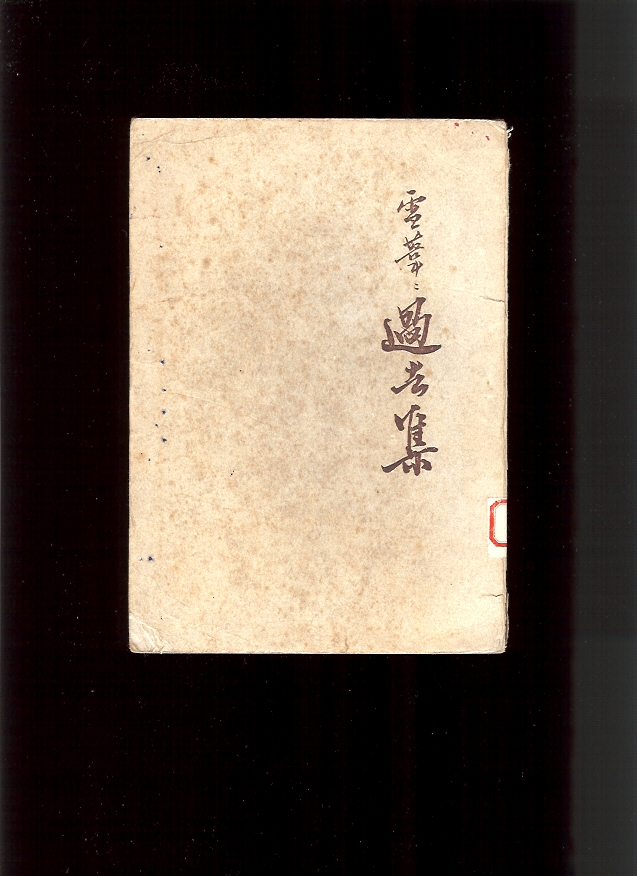 雪葦：過去集